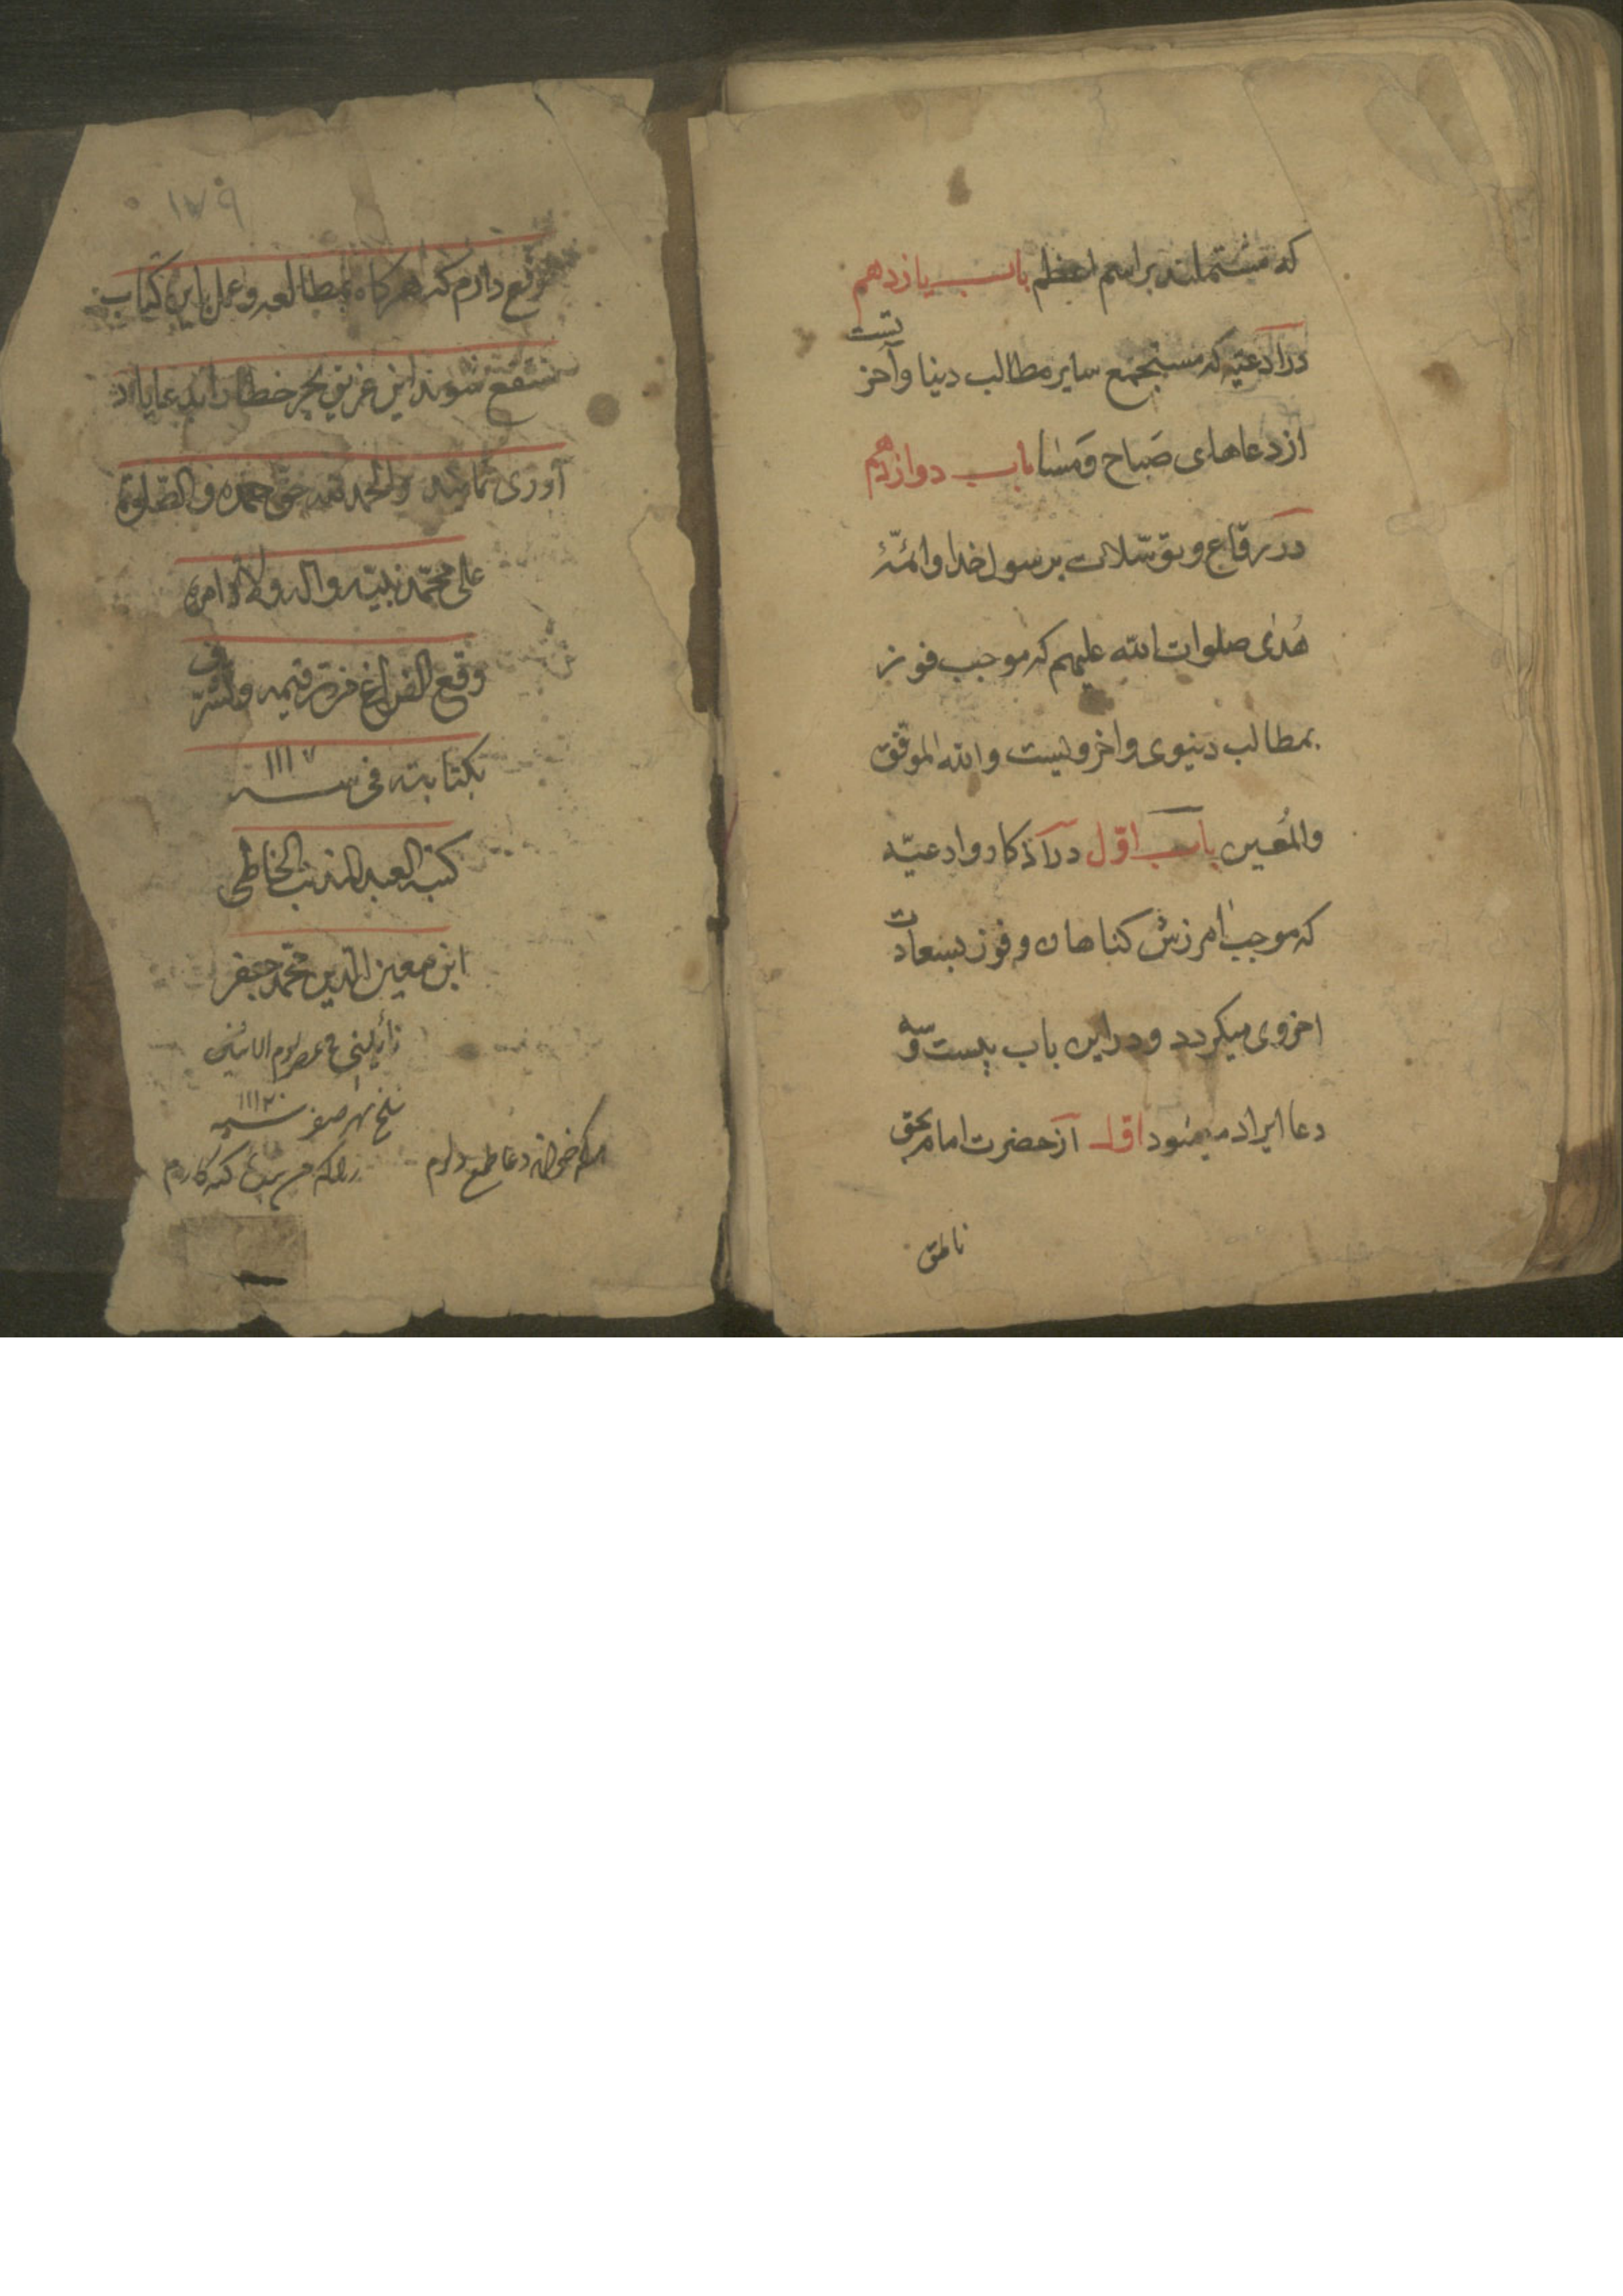 که مشتملند بر اسم اعظم باب یازدهم
در ادعیّه که مستجمع سایر مطالب دنیا و آخرتست
از دعاهای صَباح وَمَسٰا باب دوازدهم
در رقاع و توسّلات برسول خدا و ائمّهٔ
هُدیٰ صلوات الله علیهم که موجب فوز
بمطالب دنیوی و اخرویست والله الموفق
والمُعین باب اوّل در اذکار و ادعیّه
که موجب امرزش کناهان و فوز بسعادت
اخروی میکردد و در این باب بیست و سه
دعا ایراد میشود اوّل از حضرت امام بحق
ناطق
۱۷۹
توقع دارم که هرکاه بمطالعه و عمل این کتاب
منتفع شوند این غریق بحر خطا را بدعا یاد
آوری نمایند والحمد لله حقّ حمده والصّلوة
علی محمّد نبیّه واله ولاة امره
وقع الفراغ من ترقیمه وتشرّف
بکتابته فی سنه ۱۱۱۷
کتبه العبد المذنب الخاطی
ابن معین الدین محمّد جعفر
فی عصر یوم الاثنین
سلخ شهر صفر سنه ۱۱۲۰
هرکه خواند دعا طمع دارم
زانکه من بنده کنه کارم